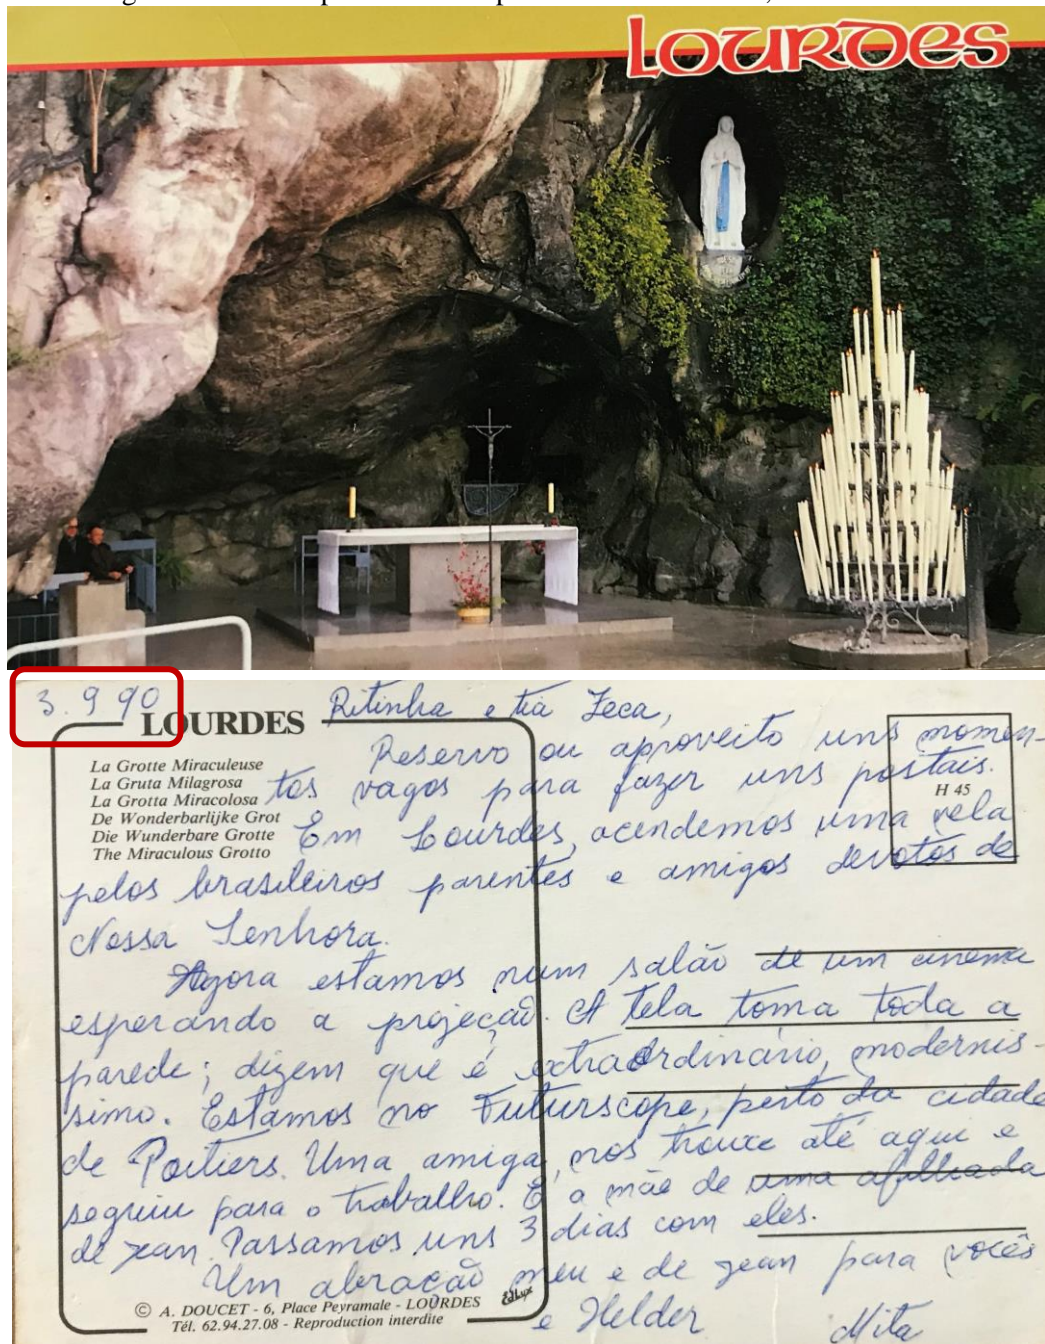 LOURDES
3.9 90
LOURDES
La Grotte Miraculeuse
La Gruta Milagrosa
La Grotta Miracolosa
De Wonderbarlijke Grot
Die Wunderbare Grotte
The Miraculous Grotto
H 45
Ritinha e tia Zeca,
Reservo ou aproveito uns momen-
tos vagos para fazer uns postais.
Em Lourdes, acendemos uma vela
pelos brasileiros parentes e amigos devotos de
Nossa Senhora.
Agora estamos num salão de um cinema
esperando a projeção. A tela toma toda a
parede; dizem que é extraordinário, modernis-
simo. Estamos no Futurscope, perto da cidade
de Poitiers. Uma amiga, nos trouxe até aqui e
seguiu para o trabalho. É a mãe de uma afilhada
de Jean. Passamos uns 3 dias com eles.
Um abração meu e de Jean para vocês
e Helder Mita
© A. DOUCET - 6, Place Peyramale - LOURDES
Tél. 62.94.27.08 - Reproduction interdite